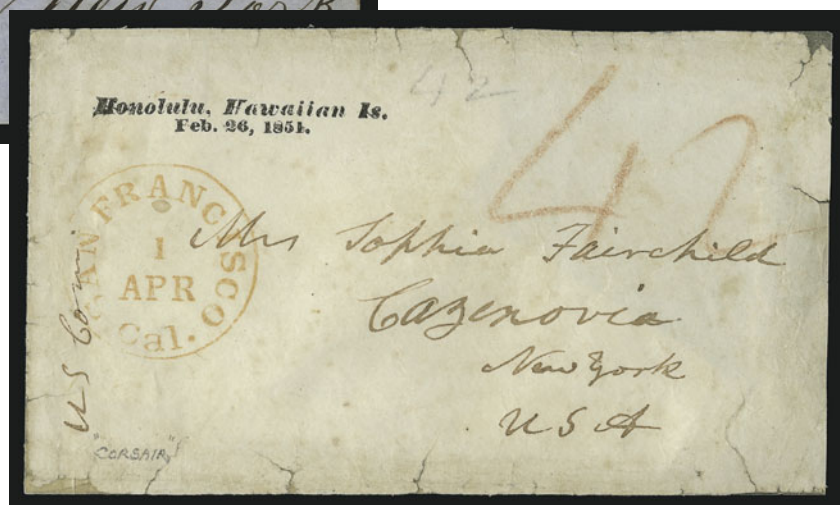 New York
42
Honolulu, Hawaiian Is.
Feb. 26, 1851.
42
SAN FRANCISCO
1
APR
Cal.
Mrs Sophia Fairchild
Cazenovia
New York
U S A
U S
"CORSAIR"